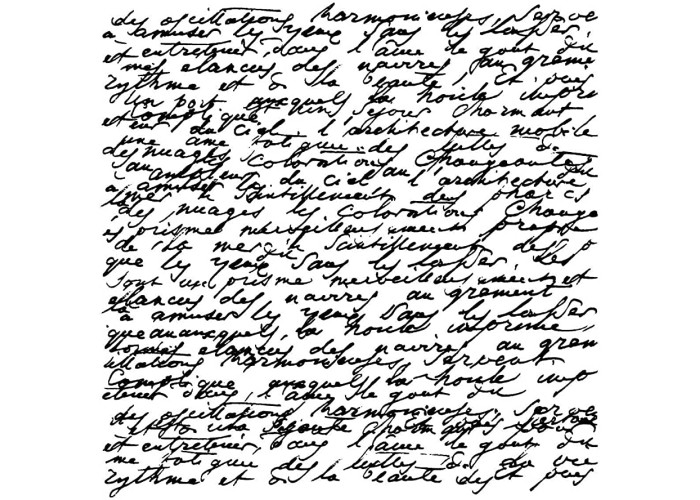 des oscillations harmonieuses, servent
à amuser les yeux sans les lasser
et entretenir, dans l'âme le gout du
mes elances des navires au gréme
rythme et de la beauté, Et puis
Un port auxquels la houle impri
et complique un sejour charmant
eur du ciel, l'architecture mobile
une ame fatiguée des luttes de
des nuages, colorations changeantes
du ciel l'architecture
à amuser le scintillement des phares
des nuages les colorations change
és prisme merveilleusement propre
de la mer, du scintillement des p
que les yeux sans les lasser Les
sont un prisme merveilleusement et
elances des navires au grément
à amuser les yeux sans les lasser
auxquels, la houle imprime
formes elances des navires au grem
illations harmonieuses, servent
Complique auxquels la houle imp
dans, l'âme le gout du
des oscillations harmonieuses, serve
charmant
et entretenir, dans l'âme le gout du
me fatiguée des luttes de la vie
rythme et de la beauté des puis